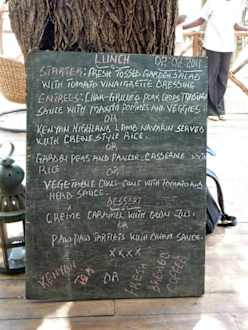 LUNCH 02.02.2011
STARTER: FRESH TOSSED GARDEN SALAD
WITH TOMATO VINAIGRETTE DRESSING
ENTREES: CHAR-GRILLED PORK CHOPS
SAUCE WITH POTATOES AND VEGGIES
OR
KENYAN HIGHLAND LAMB NAVARIN SERVED
WITH CREOLE STYLE RICE.
OR
GARDEN PEAS AND PANEER
RICE
OR
VEGETABLE WITH TOMATO AND
HERB SAUCE.
DESSERT
CREME CARAMEL WITH
OR
PAW PAW TARTLETS WITH CREAM SAUCE.
XXXX
KENYAN
TEA
OR
FRESH
BREWED
COFFEE